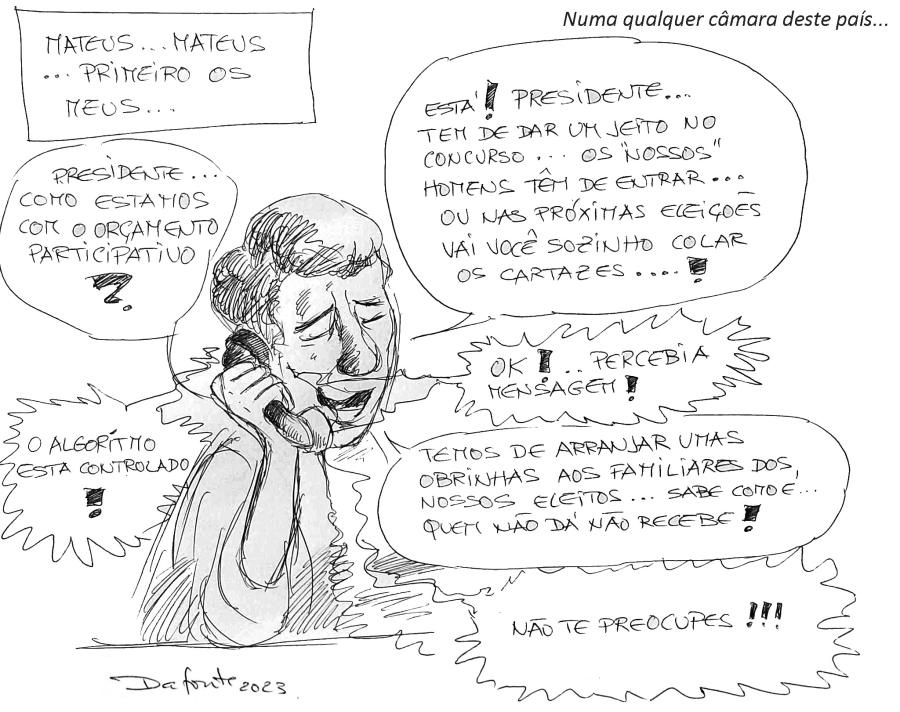 Numa qualquer câmara deste país...
MATEUS... MATEUS
... PRIMEIRO OS
MEUS...
ESTÁ! PRESIDENTE...
TEM DE DAR UM JEITO NO
CONCURSO... OS "NOSSOS"
HOMENS TÊM DE ENTRAR...
OU NAS PRÓXIMAS ELEIÇOES
VAI VOCÊ SOZINHO COLAR
OS CARTAZES....!
PRESIDENTE...
COMO ESTAMOS
COM O ORÇAMENTO
PARTICIPATIVO
?
OK!... PERCEBI A
MENSAGEM!
O ALGORÍTMO
ESTA CONTROLADO
!
TEMOS DE ARRANJAR UMAS
OBRINHAS AOS FAMILIARES DOS,
NOSSOS ELEITOS... SABE COMO E...
QUEM NÃO DÁ NÃO RECEBE!
NÃO TE PREOCUPES!!!
Dafonte 2023